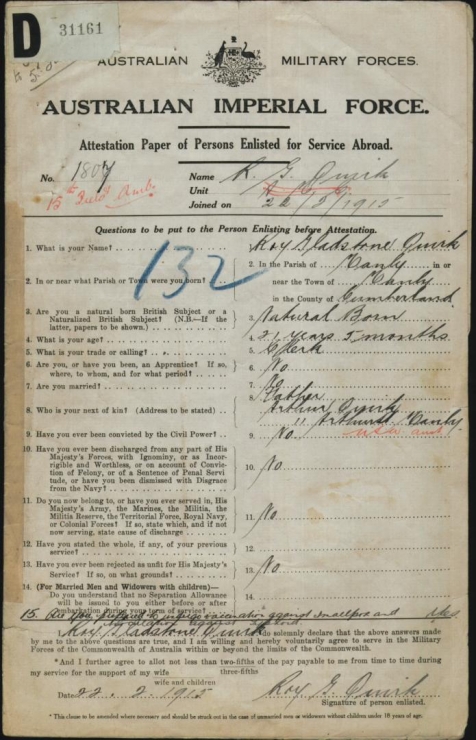 D 31161
AUSTRALIAN MILITARY FORCES.
AUSTRALIAN IMPERIAL FORCE.
Attestation Paper of Persons Enlisted for Service Abroad.
No. 1807
15th Field Amb.
Name R. G. Quirk
Unit
Joined on 22/2/1915
Questions to be put to the Person Enlisting before Attestation.
132
1. What is your Name? .. Roy Gladstone Quirk
2. In or near what Parish or Town were you born? 2. In the Parish of Manly in or
near the Town of Manly
in the County of Cumberland
3. Are you a natural born British Subject or a
Naturalized British Subject? (N.B.—If the
latter, papers to be shown.) 3. Natural Born
4. What is your age? 4. 21 years 5 months
5. What is your trade or calling? 5. Clerk
6. Are you, or have you been, an Apprentice? If so,
where, to whom, and for what period? 6. No
7. Are you married? 7.
8. Who is your next of kin? (Address to be stated) 8. Father
Arthur Quirk
Manly
9. Have you ever been convicted by the Civil Power? 9. No
10. Have you ever been discharged from any part of His
Majesty's Forces, with Ignominy, or as Incor-
rigible and Worthless, or on account of Convic-
tion of Felony, or of a Sentence of Penal Servi
tude, or have you been dismissed with Disgrace
from the Navy? 10. No
11. Do you now belong to, or have you ever served in, His
Majesty's Army, the Marines, the Militia, the
Militia Reserve, the Territorial Force, Royal Navy,
or Colonial Forces? If so, state which, and if not
now serving, state cause of discharge 11. No
12. Have you stated the whole, if any, of your previous
service? 12.
13. Have you ever been rejected as unfit for His Majesty's
Service? If so, on what grounds? 13. No
14. (For Married Men and Widowers with children)
Do you understand that no Separation Allowance
will be issued to you either before or after
embarkation during your term of service? 14.
15. Are you prepared to undergo vaccination against smallpox and Yes
I, Roy Gladstone Quirk do solemnly declare that the above answers made
by me to the above questions are true, and I am willing and hereby voluntarily agree to serve in the Military
Forces of the Commonwealth of Australia within or beyond the limits of the Commonwealth.
*And I further agree to allot not less than two-fifths of the pay payable to me from time to time during
three-fifths
my service for the support of my wife
wife and children
Date 22. 2. 1915 Roy G. Quirk
Signature of person enlisted.
*This clause to be amended where necessary and should be struck out in the case of unmarried men or widowers without children under 18 years of age.